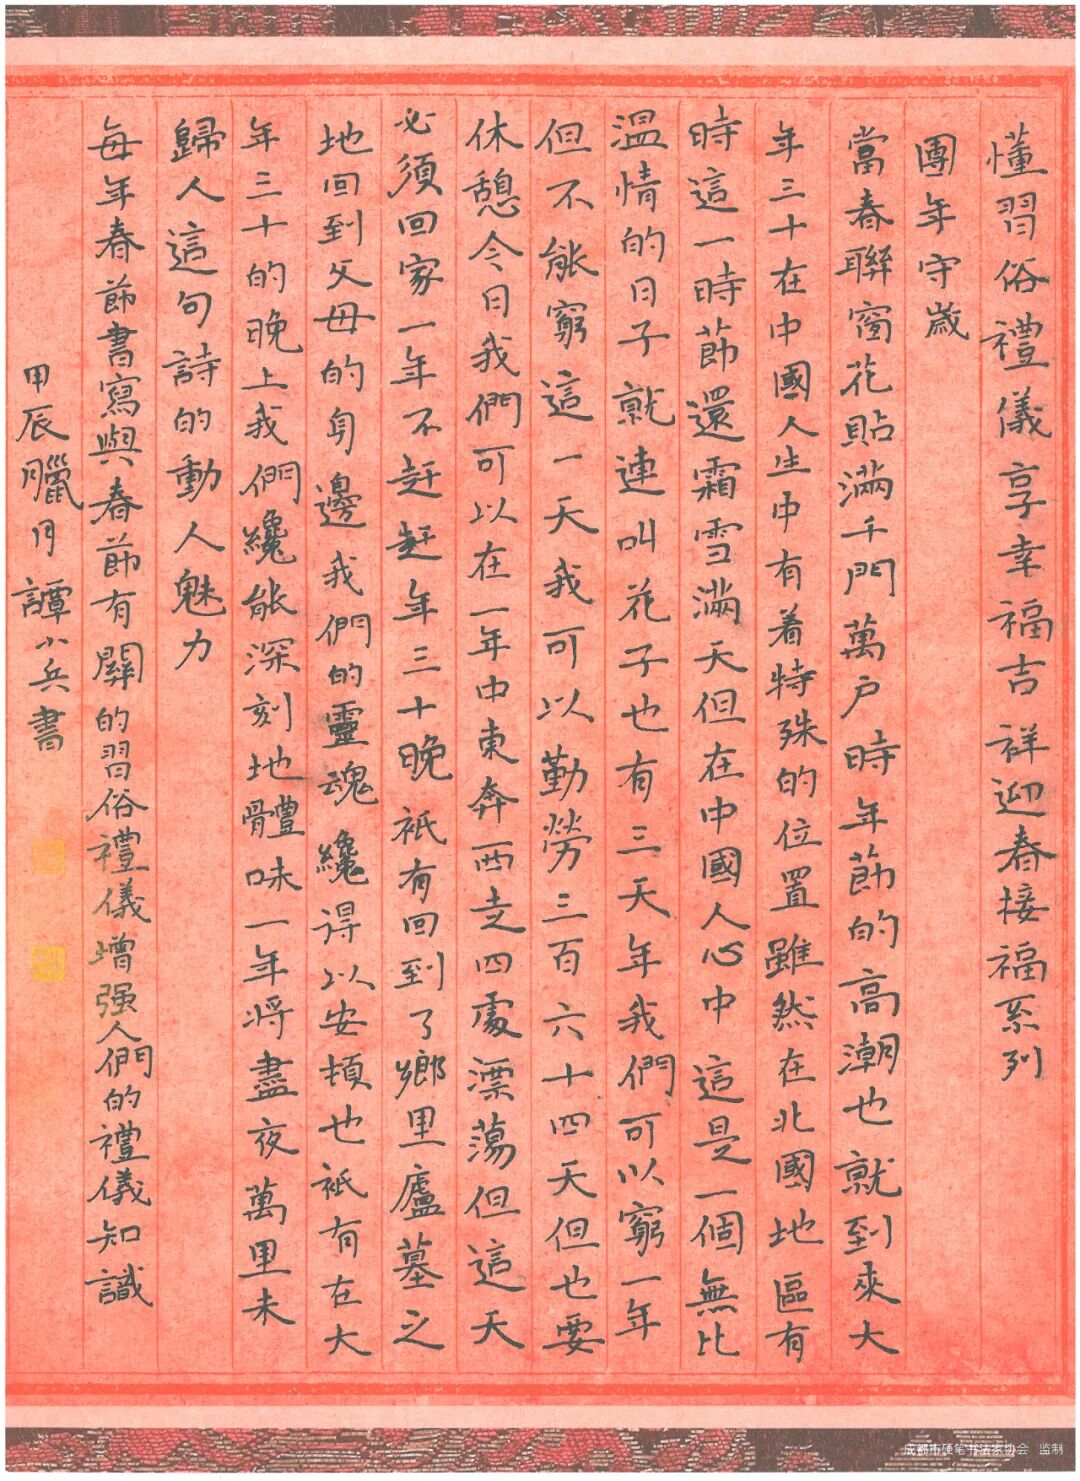 懂習俗禮儀享幸福吉祥迎春接福系列
團年守歲
當春聯窗花貼滿千門萬户時年節的高潮也就到來大
年三十在中國人生中有着特殊的位置雖然在北國地區有
時這一時節還霜雪滿天但在中國人心中這是一個無比
温情的日子就連叫花子也有三天年我們可以窮一年
但不能窮這一天我可以勤勞三百六十四天但也要
休憩今日我們可以在一年中東奔西走四處漂蕩但這天
必須回家一年不赶赶年三十晚衹有回到了鄉里廬墓之
地回到父母的身邊我們的靈魂纔得以安頓也衹有在大
年三十的晚上我們纔能深刻地體味一年將盡夜萬里未
歸人這句詩的動人魅力
每年春節書寫與春節有關的習俗禮儀增强人們的禮儀知識
甲辰臘月譚小兵書
成都市硬笔书法家协会 监制